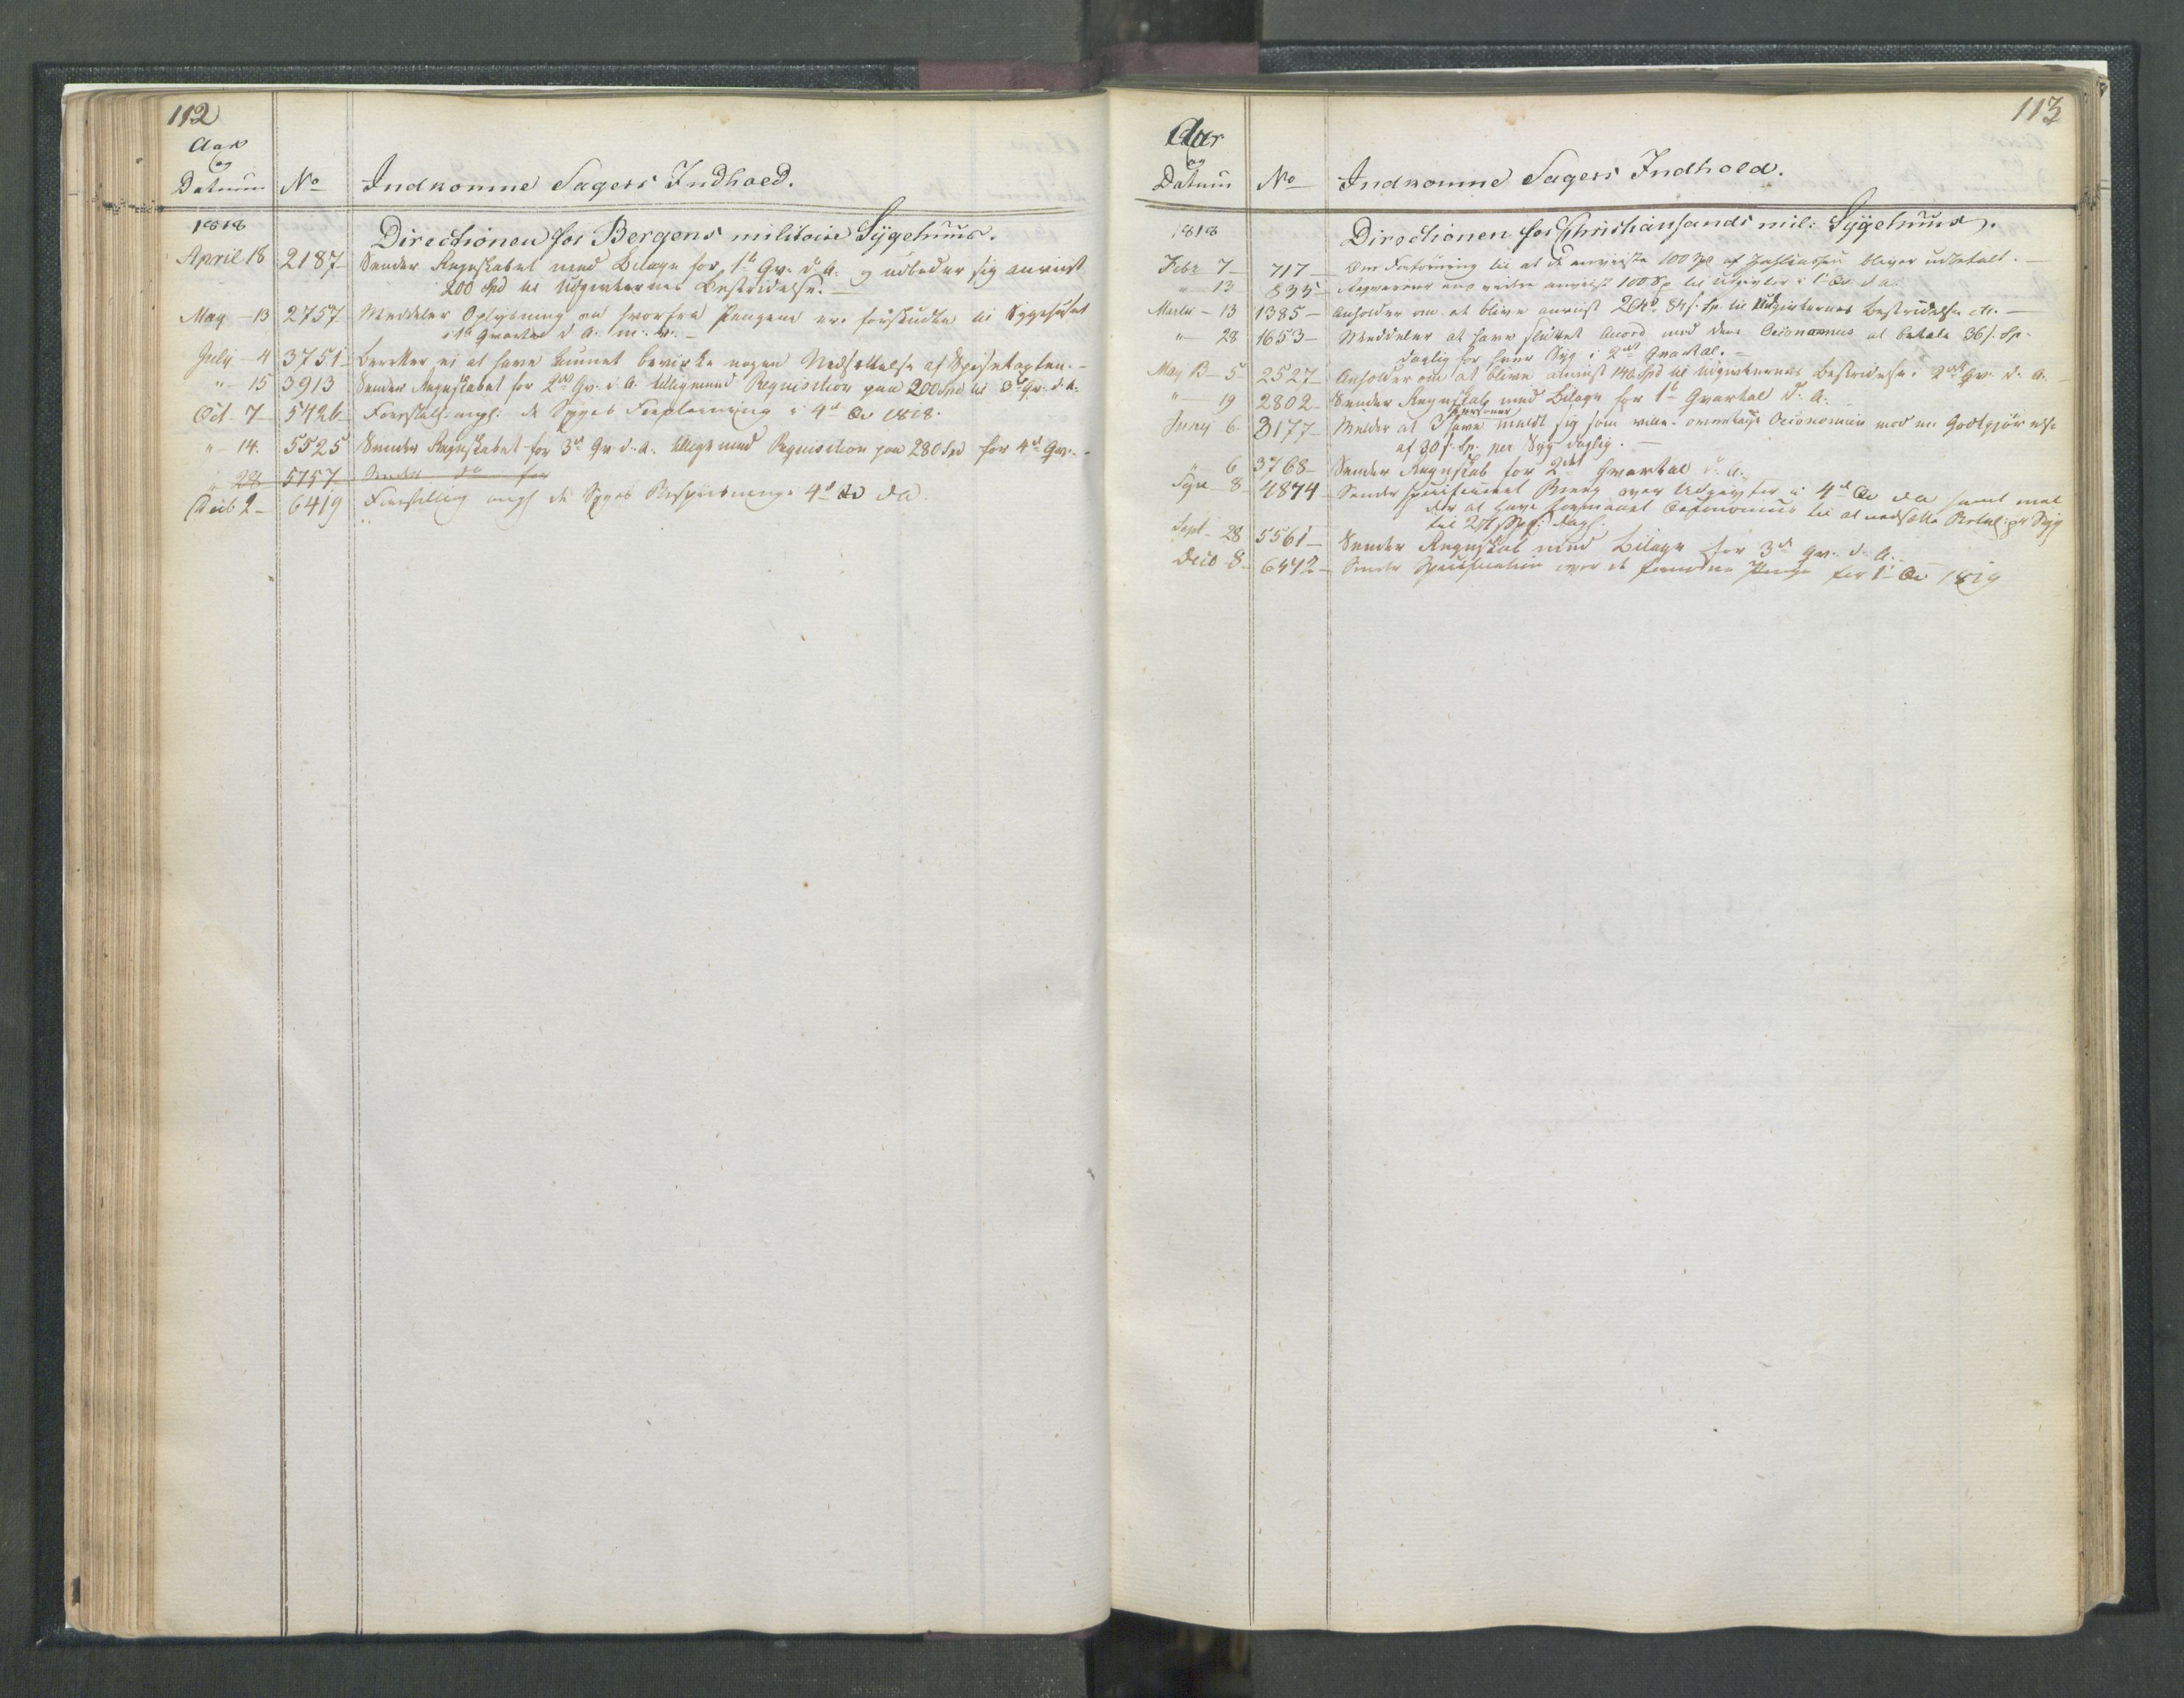 112
Aar
og
Datum No Indkomne Sagers Indhold.
1818 Directionen for Bergens militaire Sygehuus.
April 18 2187 Sender Regnskabet med Bilage for 1st Qv. d. A. og udbeder sig anviist
200 Spd til Udgivternes Bestridelse.
May 13 2757 Meddeler Oplysning om hvorfra Pengene ere forskudte til Sygehuset
i 1st Qvartal d. A. m. v.
July 4 3751 Beretter ei at have kunnet bevirke nogen Nedsættelse af Spisetaxten.
" 15 3913 Sender Regnskabet for 2det Qv. d. A. tilligemed Requisition paa 200 Spd til 3d Qv. d. A.
Oct 7 5426 Forestill. angl. de Syges Forpleining i 4d Qv 1818.
" 14. 5525 Sender Regnskabet for 3d Qv. d. A. tilligemed Requisition paa 280 Spd for 4d Qv.
" 28 5757 Sender do for
Decb 2 6419 Forestilling angl de Syges Bespiisning i 4d Qv d A.
113
Aar
og
Datum No Indkomne Sagers Indhold.
1818 Directionen for Christiansands mil: Sygehuus.
Febr 7 717 Om at de anviiste 100 Spd af bliver udbetalt.
" 13 835 anviist 100 Sp til Udgivter i 1st Qv. d. A.
Martii 13 1385 Anholder om at blive anviist 84 s. Sp. til Udgivternes Bestridelse etc.
" 28 1653 Meddeler at have sluttet Accord med dens Oeconomus at betale 36 s. Sp.
daglig for hver Syg i 2det Qvartal.
May 5 2527 Anholder om at blive anviist Spd til Udgivternes Bestridelse i 2det Qv. d. A.
" 19 2802 Sender Regnskab med Bilage for 1st Qvartal d. A.
Juny 6 3177 Melder at 3 Personer have meldt sig som ville overtage Oeconomien mod en Godtgjørelse
af 30 s. Sp. per Syg daglig.
" 6 3768 Sender Regnskab for 2det Qvartal d. A.
8 4874 Sender specificeret over Udgivter i 4d Qv d A samt mel
der at have formaaet Oeconomus til at nedsætte Betal: pr Syg
til dagl.
Sept 28 5561 Sender Regnskab med Bilage for 3d Qv. d. A.
Decb 8 6472 Sender Specification over de fornødne Penge for 1st Qv 1819